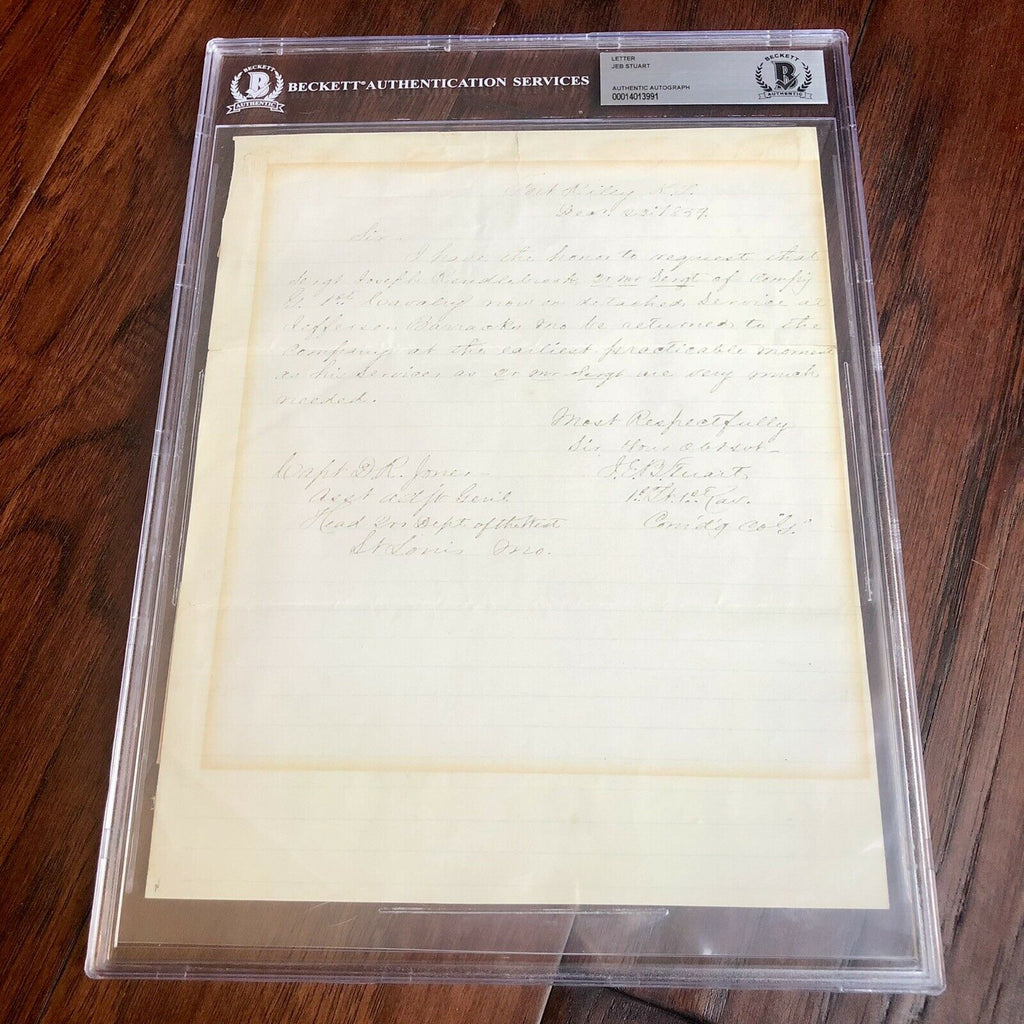 BECKETT
B
AUTHENTIC
BECKETT AUTHENTICATION SERVICES
LETTER
JEB STUART
AUTHENTIC AUTOGRAPH
00014013991
BECKETT
B
AUTHENTIC
Fort Riley K.T.
1857.
Sir
I have the honor to request that
Sergt Joseph Qr Mr Sergt of Comp'y
G. 1st Cavalry now on detached service at
Jefferson Barracks Mo be returned to the
company at the earliest practicable moment
as his services as Qr Mr Sergt are very much
needed.
Most Respectfully
Sir Your Obt svt
Capt D. R. Jones
J.E.B. Stuart
Asst Adjt Genl
1st Lt 1st Cav.
Head Qrs Dept of the West
Comdg Co "G"
St Louis Mo.